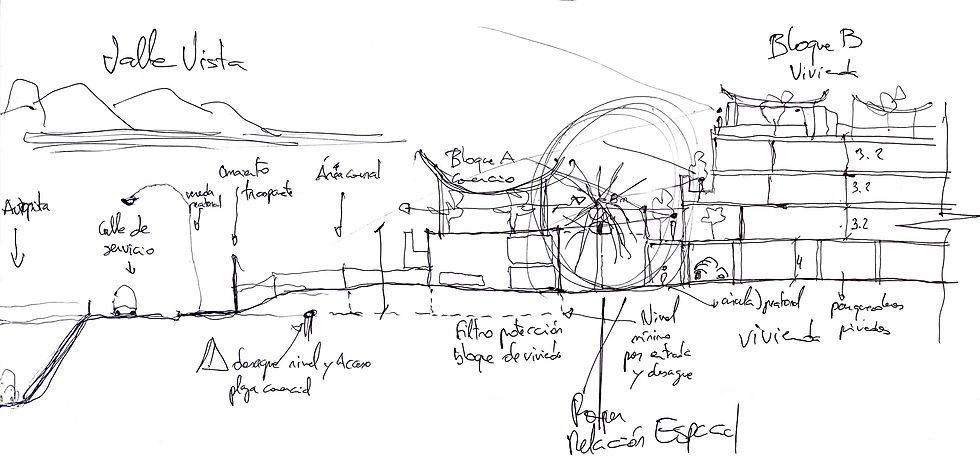 Valle Vista
Bloque B
Vivienda
Bloque A
Comercio
Área comunal
Calle de
servicio
vereda
peatonal
3.2
3.2
3.2
4
Filtro protección
bloque de vivienda
Nivel
mínimo
por entrada
y desague
peatonal
vivienda
parqueaderos
privados
desague nivel y Acceso
plaza comercial
Romper
Relación Espacial